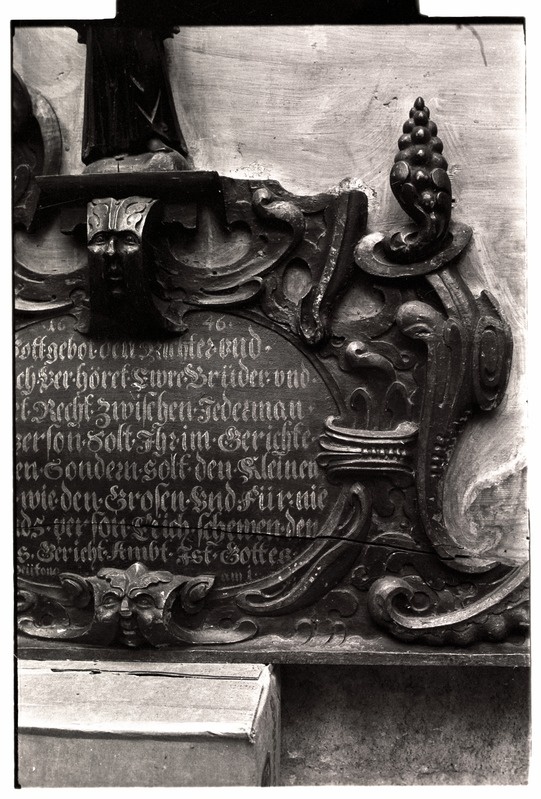 16 46.
Gott gebot den Richter vnd.
ch. Ver.höret Ewre Brüder. vnd.
t. Recht. Zwischen. Jederman.
person. Solt. Ihr. im. Gerichte.
en. Sondern. solt. den. Kleinen
wie. den. Grosen. Vnd. Für. nie
ds. per son. Euch. schewen. den
s. Gericht. Ambt. Ist. Gottes.
am 1.